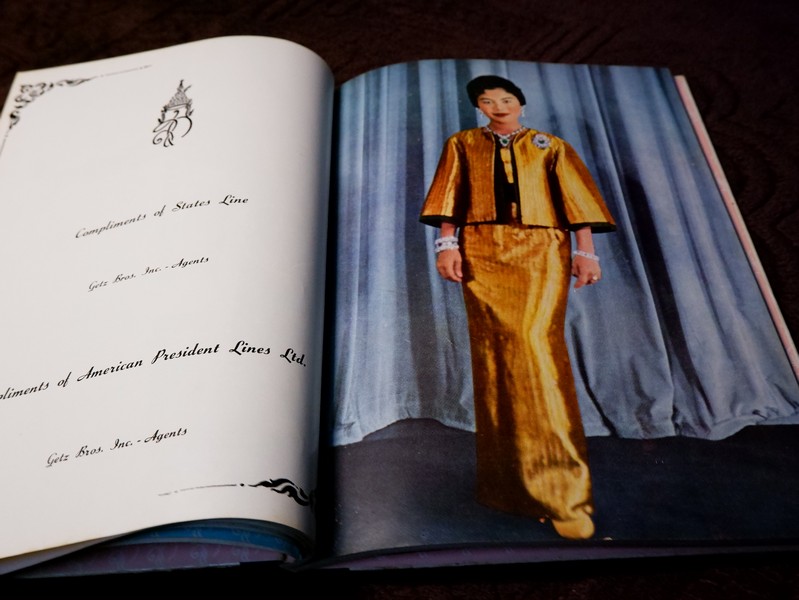 Compliments of States Line
Getz Bros. Inc. - Agents
pliments of American President Lines Ltd.
Getz Bros. Inc. - Agents